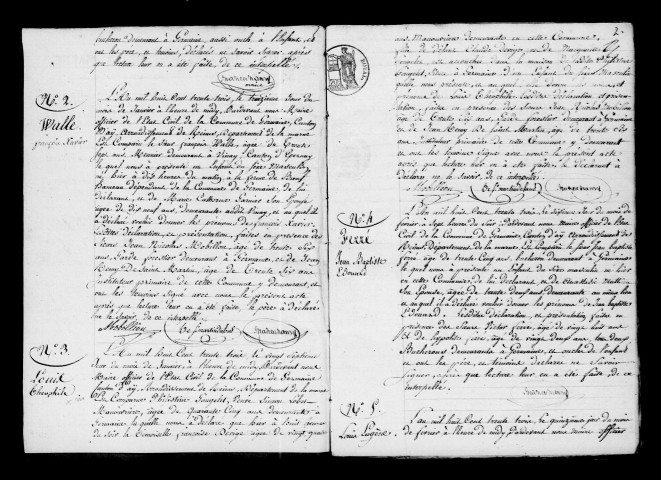 Bucheron demeurant à Germaine, aussi oncle à l'enfant, et
ont les père, et témoins, déclarés ne savoir signer après
que lecture leur en a été faite, de ce interpellé
N°. 2.
Walle
françois Xavier
L'An mil huit Cent trente trois, le treizième Jour du
mois de Janvier à l'heure de midy, Pardevant nous Maire
officier de l'Etat Civil de la Commune de Germaine, Canton
D'aÿ, Arrondissement de Reims, Département de la marne
Est Comparu le Sieur françois Walle, âgé de Trente
Sept ans, Menuisier demeurant à Vinay, Canton d'Epernay
le quel nous a présenté un Enfant du Sexe Masculin,
né hier à dix heures du matin, à la ferme de Bœuf
hameau dépendant de la Commune de Germaine, de lui
déclarant, et de Marie Catherine Garnier Son Epouse
âgée de dix neuf ans, demeurante audit Vinay, et au quel il
a déclaré vouloir donner les prénoms de françois Xavier.
Lesdites déclaration, et présentation, faites en présence des
Sieurs Jean Nicolas Mobillion, âgé de trente Six
ans, Garde forestier demeurant à Germaine, et de Jean
Remy De Saint Martin, âgé de Trente Six ans
instituteur primaire de cette Commune y demeurant, et
ont les témoins Signé avec nous le présent acte
après que lecture leur en a été faite, le père a déclaré
ne le Savoir, de ce interpellé
Mobillion
N°. 3.
Louis
Théophile
L'An mil huit Cent trente trois, le vingt Septième
Jour du mois de Janvier, à l'heure de midy, Pardevant nous
Maire officier de l'Etat Civil de la Commune de Germaine
Canton d'aÿ, Arrondissement de Reims, Département de la marne
Est Comparue
Manouvrière, âgée de quarante Cinq ans demeurante à
Germaine, la quelle nous a déclaré que hier à trois heures
du Soir la Demoiselle françoise Derige, âgée de vingt quatre
2.
ans, Manouvrière demeurante en cette Commune,
fille de défunt Claude Derige, et de Marguerite
est accouchée dans la maison de
à Germaine d'un Enfant du Sexe Masculin
quelle nous présente, et au quel elle donne
de Louis Théophile. Lesdites déclaration et présen-
tation, faites en présence des Sieurs Jean Nicolas Mobillion
âgé de Trente Six ans, Garde forestier demeurant à Germaine
et de Jean Remy De Saint Martin, âgé de trente Six
ans Instituteur primaire de cette Commune y demeurant
et ont les témoins Signé avec nous le présent acte
après que lecture leur en a été faite, la
déclaré ne le Savoir, de ce interpellé
Mobillion
N°. 4.
Ferré
Jean Baptiste
Edouard
L'An mil huit Cent trente trois, Le dixième Jour du mois de
février à Sept heures du Soir Pardevant nous maire officier de l'Etat
Civil de la Commune de Germaine, Canton d'aÿ, arrondissement de
Reims, Département de la marne, Est Comparu le Sieur Jean Baptiste
Ferré, âgé de trente Cinq ans, bucheron demeurant à Germaine
le quel nous a présenté un Enfant du Sexe masculin né hier
en cette Commune de lui déclarant, et de
son Epouse, âgée de trente deux ans demeurante au même lieu
et au quel il a déclaré vouloir donner les prénoms de Jean Baptiste
Edouard. Lesdites déclaration, et présentation faites en
présence des Sieurs Victor Ferré, âgé de vingt huit ans
et de hypolite Ferré, âgé de vingt deux ans, tous deux
Bucherons demeurants à Germaine, et oncles de l'enfant
et ont les père, et témoins déclaré ne Savoir
Signer, après que lecture leur en a été faite, de ce
interpellé
N°. 5.
Louis Eugène.
L'an mil huit Cent trente trois, le quinzième jour du mois
de février à l'heure de midy, pardevant nous maire officier